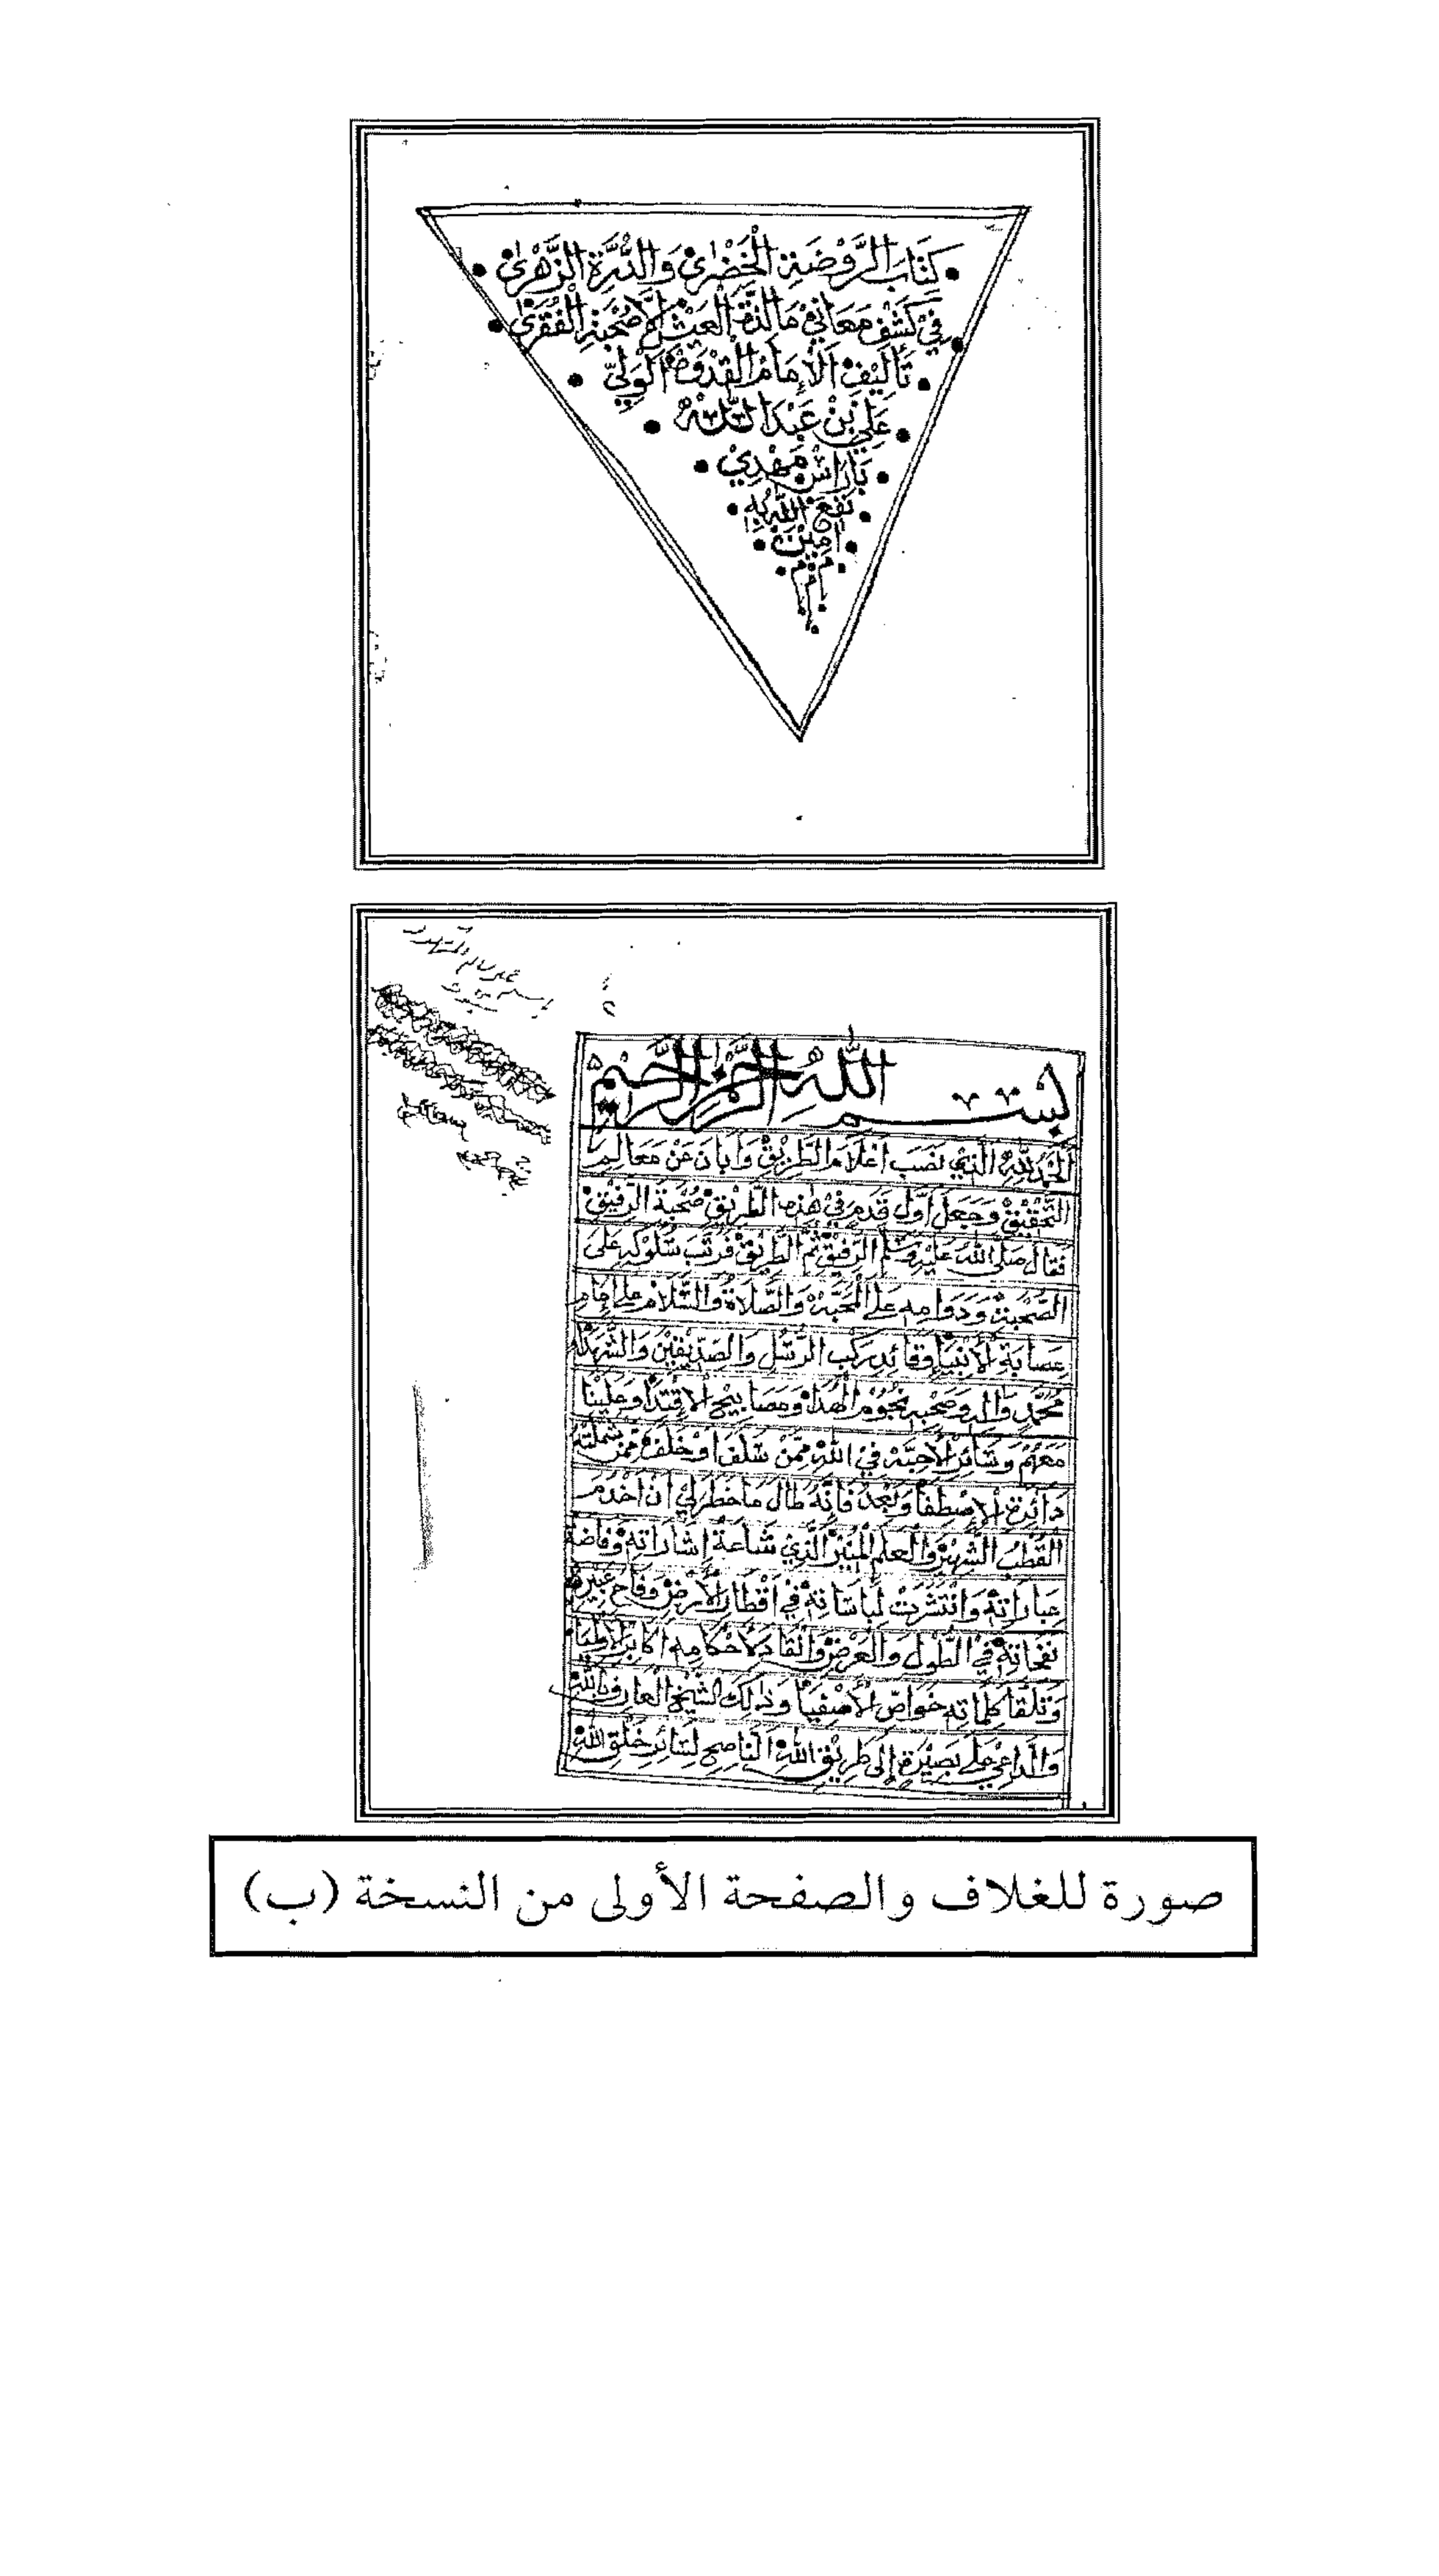 كِتَابُ الرَّوْضَةِ الْخَضْرَىٰ وَالدُّرَّةِ الزَّهْرَىٰ
فِيْ كَشْفِ مَعَانِيْ مَا لَذَّةُ الْعَيْشِ إِلَّا صُحْبَةُ الْفُقَرَىٰ
تَأْلِيْفُ الْإِمَامِ الْقُدْوَةِ الْوَلِيِّ
عَلِي بْنِ عَبْدِ اللّٰهْ
بَارَاسْ مَهْدِيْ
نَفَعَ اللهُ بِهِ
اٰمِيْنَ
بسم الله الرحمن الرحيم
الْحَمْدُ لِلّٰهِ الَّذِيْ نَصَبَ اعْلَامَ الطَّرِيْقِ وَابَانَ عَنْ مَعَالِمِ
التَّحْقِيْقِ وَجَعَلَ اَوَّلَ قَدَمٍ فِيْ هٰذِهِ الطَّرِيْقِ صُحْبَةَ الرَّفِيْقِ
فَقَالَ صَلَّى اللهُ عَلَيْهِ وَسَلَّمَ الرَّفِيْقَ ثُمَّ الطَّرِيْقَ فَرَتَّبَ سُلُوْكِهِ عَلَى
الصُّحْبَةِ وَدَوَامِهِ عَلَى الْمَحَبَّةِ وَالصَّلَاةُ وَالسَّلَامُ عَلَى اِمَامِ
عِسَابَةِ الْانْبِيَا وَقَائِدِ رَكْبِ الرُّسُلِ وَالصِّدِّيْقِيْنَ وَالشُّهَدَا
مُحَمَّدٍ وَاٰلِهِ وَصَحْبِهِ نُجُوْمِ الْهُدَا وَمَصَابِيْحِ الْاقْتِدَا وَعَلَيْنَا
مَعَهُمْ وَسَائِرِ الْاَحِبَّةِ فِي اللهِ مِمَّنْ سَلَفَ اوْ خَلَفَ مِمَّنْ شَمَلَتْهُ
دَائِرَةُ الْاِصْطِفَا وَبَعْدُ فَاِنَّهُ طَالَ مَا خَطَرَ لِيْ اَنْ اَخْدُمَ
الْقُطْبَ الشَّهِيْرَ وَالْعَلَمَ الْمُنِيْرَ الَّذِيْ شَاعَةْ اِشَارَاتُهُ وَفَاضَةْ
عِبَارَاتُهُ وَانْتَشَرَتْ لِبَاسَاتُهُ فِيْ اَقْطَارِ الْاَرْضِ وَفَاحَ عَبِيْرُ
نَفَحَاتِهِ فِي الطُّوْلِ وَالْعَرْضِ وَانْقَادَ لِاَحْكَامِهِ اَكَابِرُ الْاَوْلِيَا
وَتَلَقَّا كَلِمَاتِهِ خَوَاصُّ الْاَصْفِيَا وَذٰلِكَ الشَّيْخُ الْعَارِفُ بِاللهِ
وَالدَّاعِيْ عَلَى بَصِيْرَةٍ اِلَى طَرِيْقِ اللهِ النَّاصِحُ لِسَائِرِ خَلْقِ اللهِ
صورة للغلاف والصفحة الأولى من النسخة (ب)